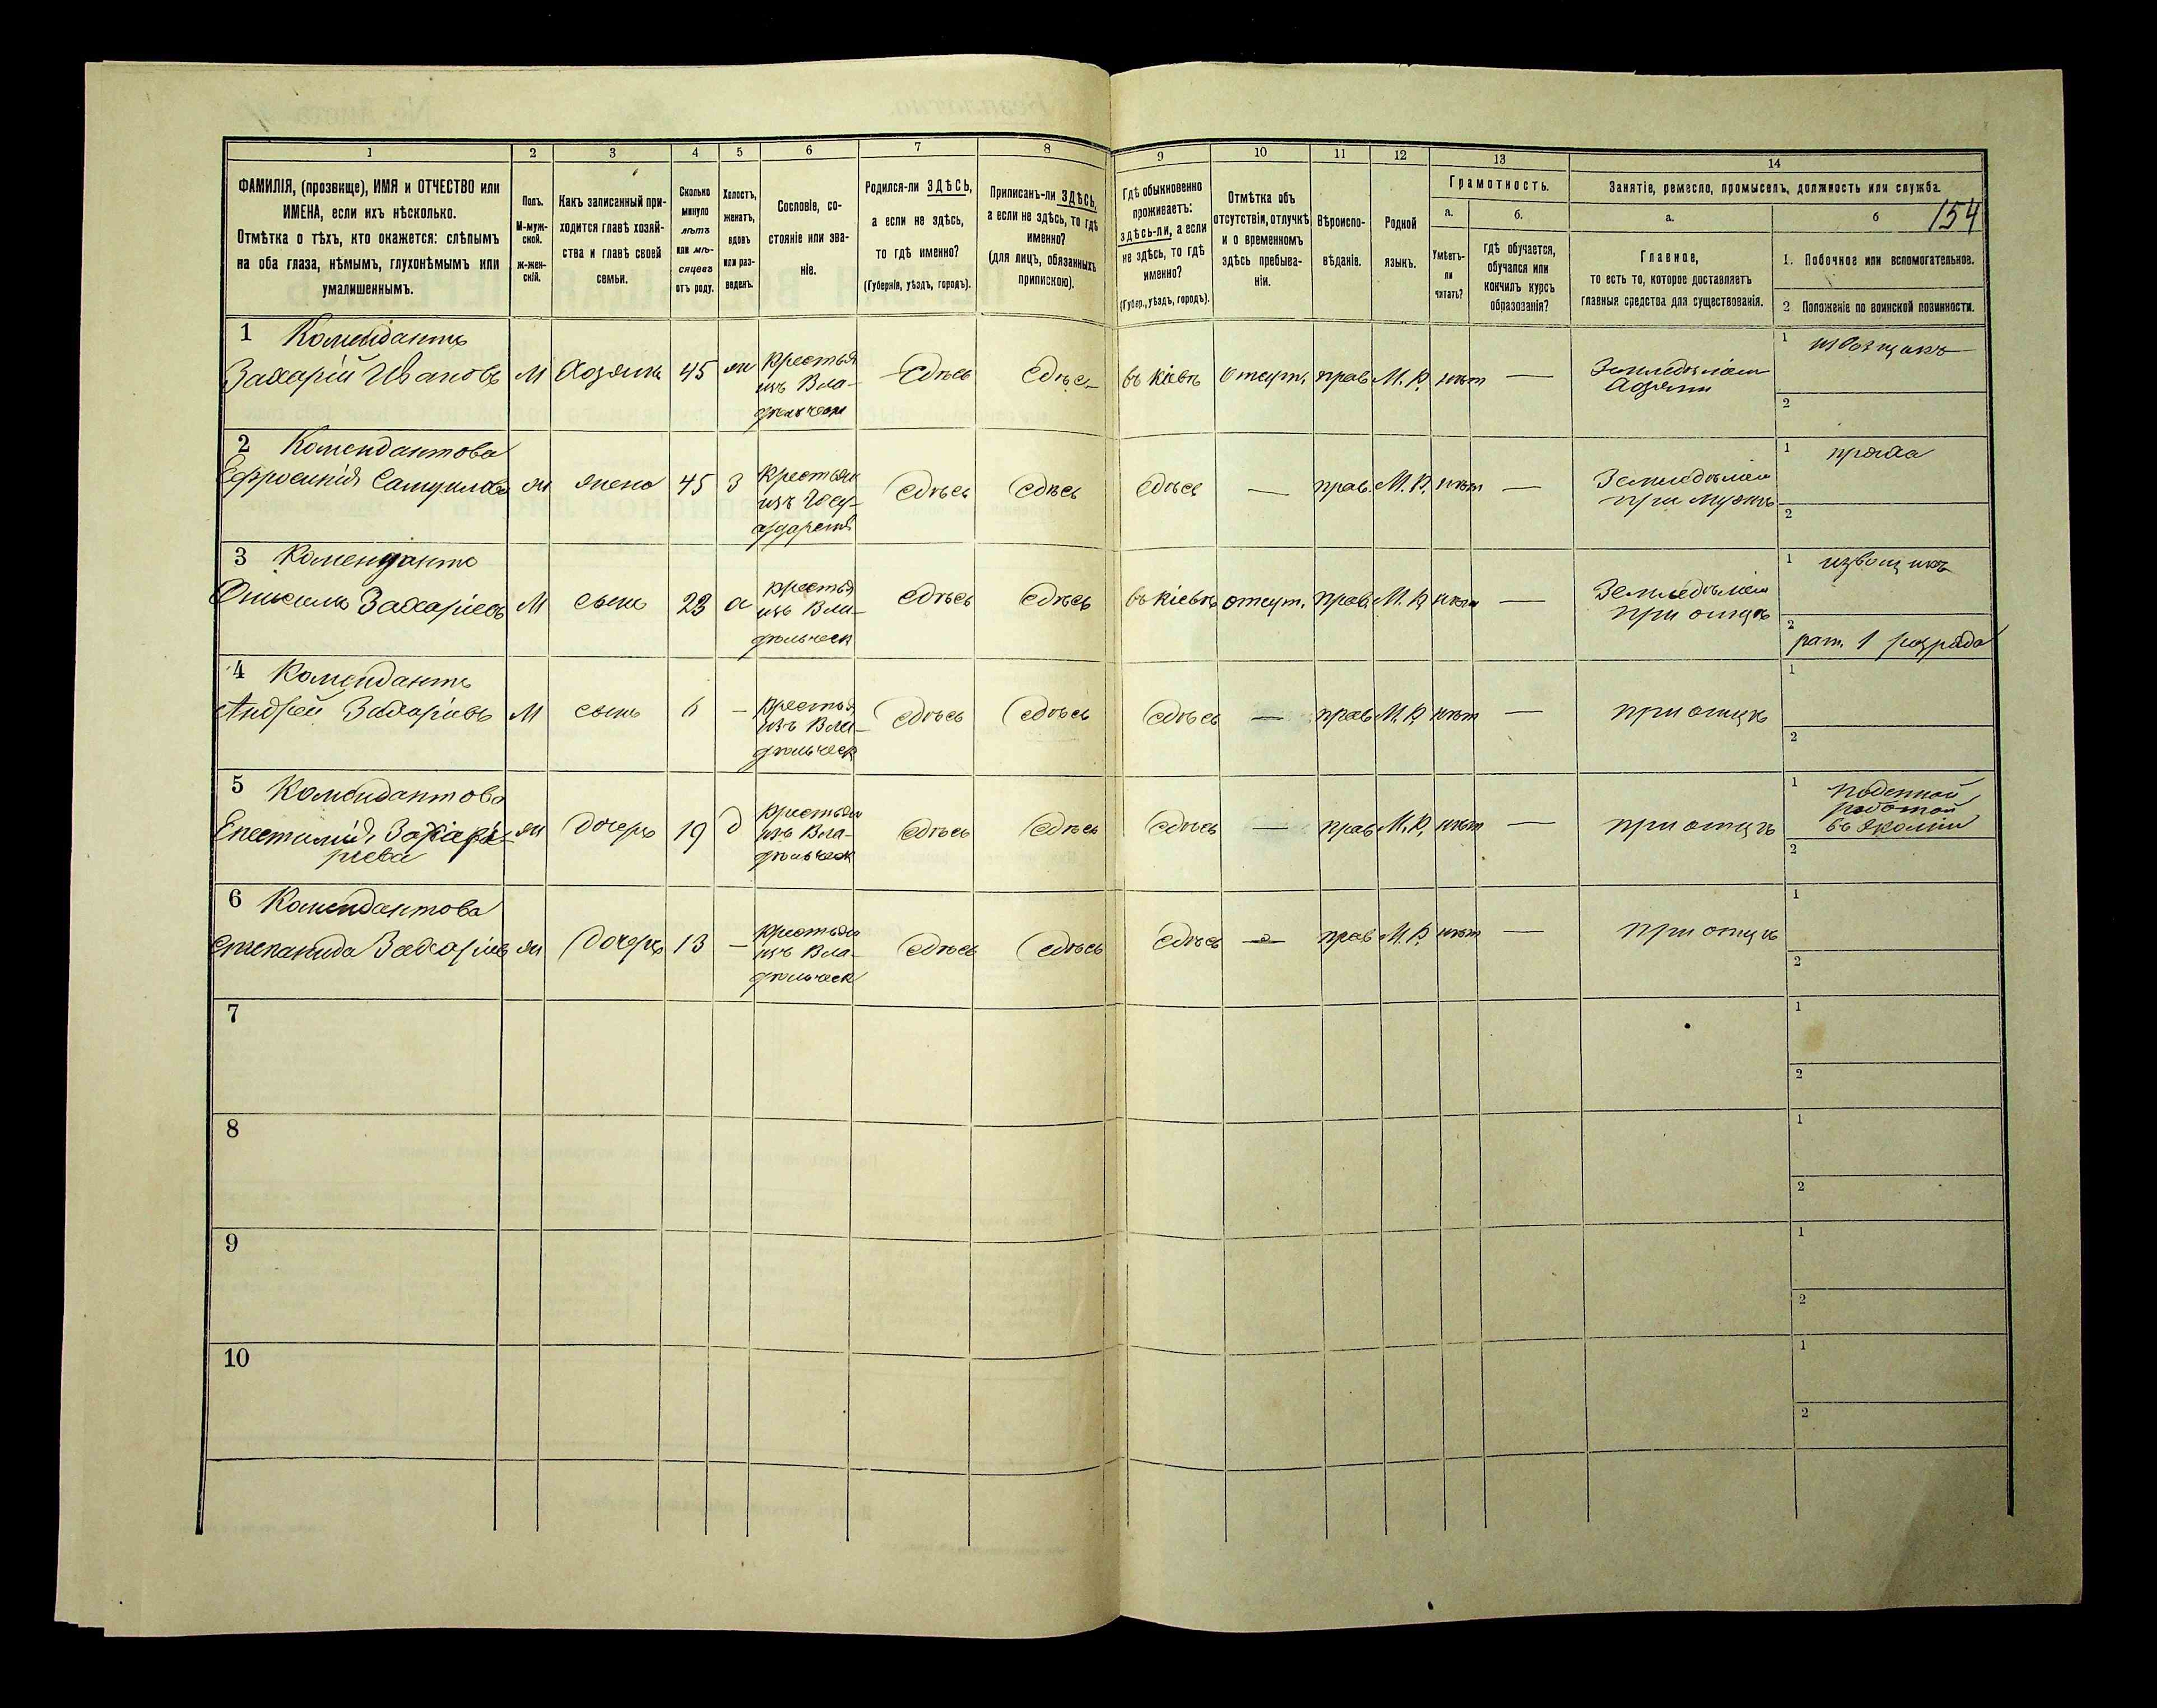 1
2
3
4
5
6
7
8
9
10
11
12
13
14
ФАМИЛІЯ, (прозвище), ИМЯ и ОТЧЕСТВО или
ИМЕНА, если ихъ нѣсколько.
Отмѣтка о тѣхъ, кто окажется: слѣпымъ
на оба глаза, нѣмымъ, глухонѣмымъ или
умалишеннымъ.
Полъ.
М-муж-
ской.
Ж-жен-
скій.
Какъ записанный при-
ходится главѣ хозяй-
ства и главѣ своей
семьи.
Сколько
минуло
лѣтъ
или мѣ-
сяцевъ
отъ роду.
Холостъ,
женатъ,
вдовъ
или раз-
веденъ.
Сословіе, со-
стояніе или зва-
ніе.
Родился-ли ЗДѢСЬ,
а если не здѣсь,
то гдѣ именно?
(Губернія, уѣздъ, городъ).
Приписанъ-ли ЗДѢСЬ,
а если не здѣсь, то гдѣ
именно?
(для лицъ, обязанныхъ
припискою).
Гдѣ обыкновенно
проживаетъ:
здѣсь-ли, а если
не здѣсь, то гдѣ
именно?
(Губер., уѣздъ, городъ).
Отмѣтка объ
отсутствіи, отлучкѣ
и о временномъ
здѣсь пребыва-
ніи.
Вѣроиспо-
вѣданіе.
Родной
языкъ.
Грамотность.
а.
б.
Умѣетъ-
ли
читать?
гдѣ обучается,
обучался или
кончилъ курсъ
образованія?
Занятіе, ремесло, промыселъ, должность или служба.
а.
б
154
Главное,
то есть то, которое доставляетъ
главныя средства для существованія.
1. Побочное или вспомогательное.
2. Положеніе по воинской повинности.
1 Комендантъ
Захарій Ивановъ М Хозяинъ 45 ж Крестья
изъ Вла-
дѣльческ
Сдѣсь Сдѣсь въ Кіевѣ Отсут. прав. М. Р. нѣтъ —
Земледѣліем
Хозяин
1 извозщикъ
2
2 Комендантова
Ефросинія Самуилова ж жена 45 З Крестьян
изъ Госу-
Сдѣсь Сдѣсь Сдѣсь — прав. М. Р. нѣтъ —
Земледѣліем
при мужѣ
1 пряха
2
3 Комендантъ
Захаріевъ М сынъ 23 х крестья
изъ Вла-
дѣльческ
Сдѣсь Сдѣсь въ Кіевѣ отсут. прав. М. Р. нѣтъ —
Земледѣліем
при отцѣ
1 извощикъ
2 рат. 1 розряда
4 Комендантъ
Андрей Захаріевъ М сынъ 6 — крестья
изъ Вла-
дѣльческ
Сдѣсь Сдѣсь Сдѣсь — прав М. Р. нѣтъ —
при отцѣ
1
2
5 Комендантова
Епистимія Захарі-
рiева
ж дочерь 19 д крестьян
изъ Вла-
дѣльческ
Сдѣсь Сдѣсь Сдѣсь — прав М. Р. нѣтъ —
при отцѣ
1 поденной
работой
въ Экономіи
2
6 Комендантова
Степанида Захаріев ж дочерь 13 — крестьян
изъ Вла-
дѣльческ
Сдѣсь Сдѣсь Сдѣсь — прав М. Р. нѣтъ —
при отцѣ
1
2
7
1
2
8
1
2
9
1
2
10
1
2